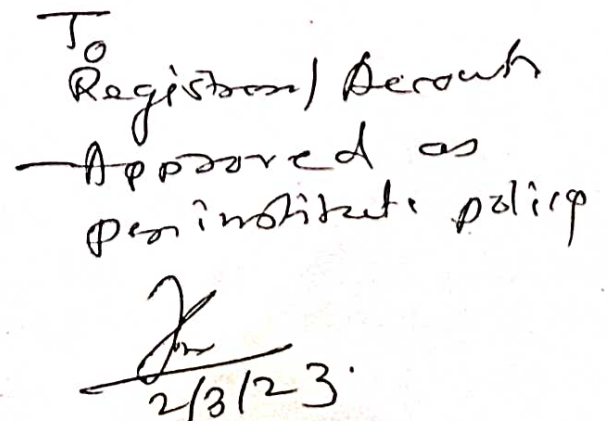 To
Registrar/ Accounts
- Approved as
per institute policy
2/3/23.